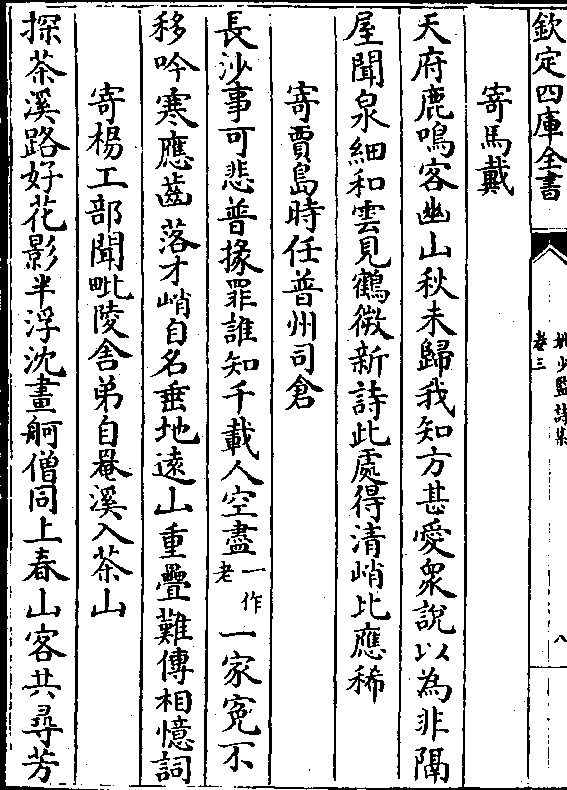 欽定四庫全書
姚少監詩集
卷三
八
寄馬戴
天府鹿鳴客幽山秋未歸我知方甚愛衆說以為非隔
屋聞泉細和雲見鶴微新詩此處得清峭比應稀
寄賈島時任普州司倉
長沙事可悲普掾罪誰知千載人空盡一作老一家寃不
移吟寒應齒落才峭自名垂地遠山重疊難傳相憶詞
寄楊工部聞毗陵舍弟自罨溪入茶山
採茶溪路好花影半浮沈畫舸僧同上春山客共尋芳